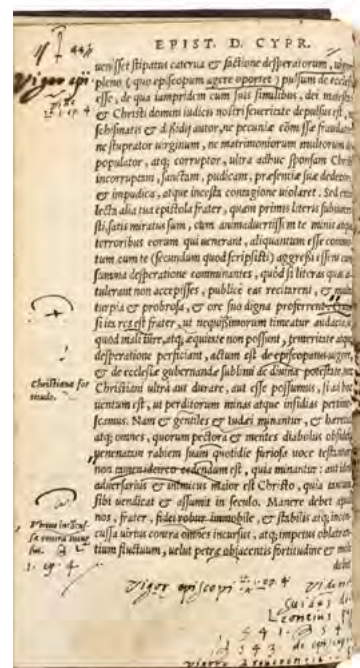 EPIST. D. CYPR.
uenisset stipatus caterua & factione desperatorum, uigore
pleno (quo episcopum agere oportet) pulsum de ecclesia
esse, de qua iampridem cum suis similibus, dei maiestate
& Christi domini iudicis nostri seueritate depulsus est, ne
schismatis & dissidij autor, ne pecuniæ commissæ fraudator,
ne stuprator uirginum, ne matrimoniorum multorum
populator, atq; corruptor, ultra adhuc sponsam Christi
incorruptam, sanctam, pudicam, præsentiæ suæ dedecore
& impudica, atque incesta contagione uiolaret. Sed
lecta alia tua epistola frater, quam primis literis subiunxi
sti, satis miratus sum, cum animaduertissem te minis atq;
terroribus eorum qui uenerant, aliquantum esse commo
tum cum te (secundum quod scripsisti) aggressi essent cum
summa desperatione comminantes, quòd si literas quas at
tulerant non accepisses, publicè eas recitarent, & multa
turpia & probrosa, & ore suo digna proferrent.
si ita res est frater, ut nequissimorum timeatur audacia,
quod mali iure, atq; æquitate non possunt, temeritate atq;
desperatione perficiant, actum est de episcopatus uigore,
& de ecclesiæ gubernandæ sublimi ac diuina potestate, nec
Christiani ultrà aut durare, aut esse possumus, si ad hoc
uentum est, ut perditorum minas atque insidias pertime
scamus. Nam & gentiles & iudæi minantur, & hæretici
atq; omnes, quorum pectora & mentes diabolus obsidet,
uenenatam rabiem suam quotidie furiosa uoce testantur,
non tamen idcirco cedendum est, quia minantur: aut ideo
aduersarius & inimicus maior est Christo, quia tantum
sibi uendicat & assumit in seculo. Manere debet apud
nos, frater, fidei robur immobile, & stabilis atq; incon
cussa uirtus contra omnes incursus, atq; impetus oblatran
tium fluctuum, uelut petræ obiacentis fortitudine & mole
debet
Vigor epi.
Christiana for
titudo.
Virtus incōcus
sa contra incur
sus.
1. ep. 4
Vigor episcopi 1. ep. 4
Suidas
Leontius